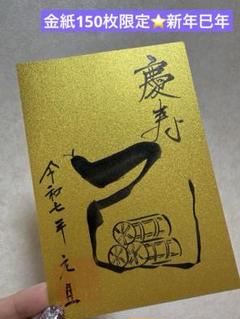 金紙150枚限定⭐新年巳年
慶寿
巳
令和七年 元旦